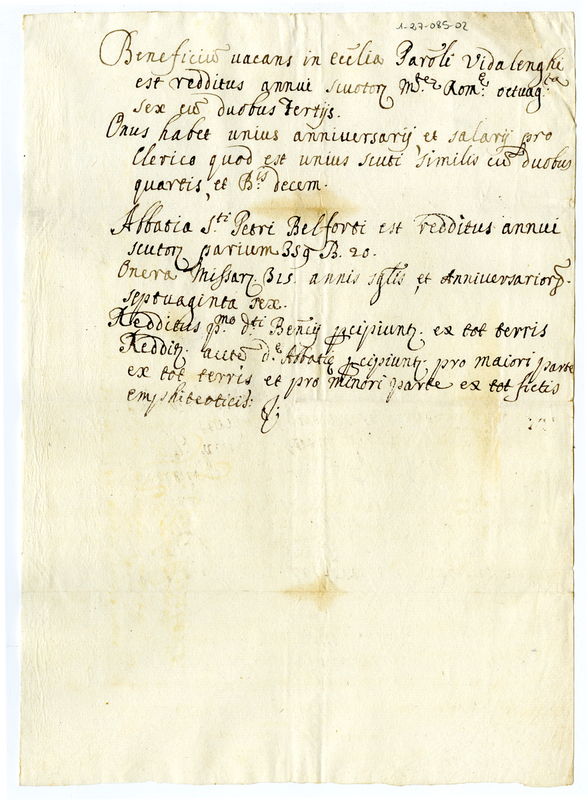 1-27-085-02
Beneficiũ vacans in Ecclia Paroli Vidalenghi
est redditus annui scutoꝝ M.tæ Rom.e octuag.ta
sex cũ duobus tertijs.
Onus habet unius anniversarij et salarij pro
Clerico quod est unius scuti similis cũ duobus
quartis, et B.is decem.
Abbatia S.ti Petri Belforti est redditus annui
scutoꝝ parium 359 B. 20.
Onera Missarꝝ 315 annis sglis, et Anniversarioꝝ
septuaginta sex.
Redditus p.mo d.ti Benẽij ꝑcipiuntꝛ ex tot terris
Reddit9 autẽ d.e Abbatiæ ꝑcipiuntꝛ pro maiori parte
ex tot terris et pro minori parte ex tot fictis
emphiteoticis.